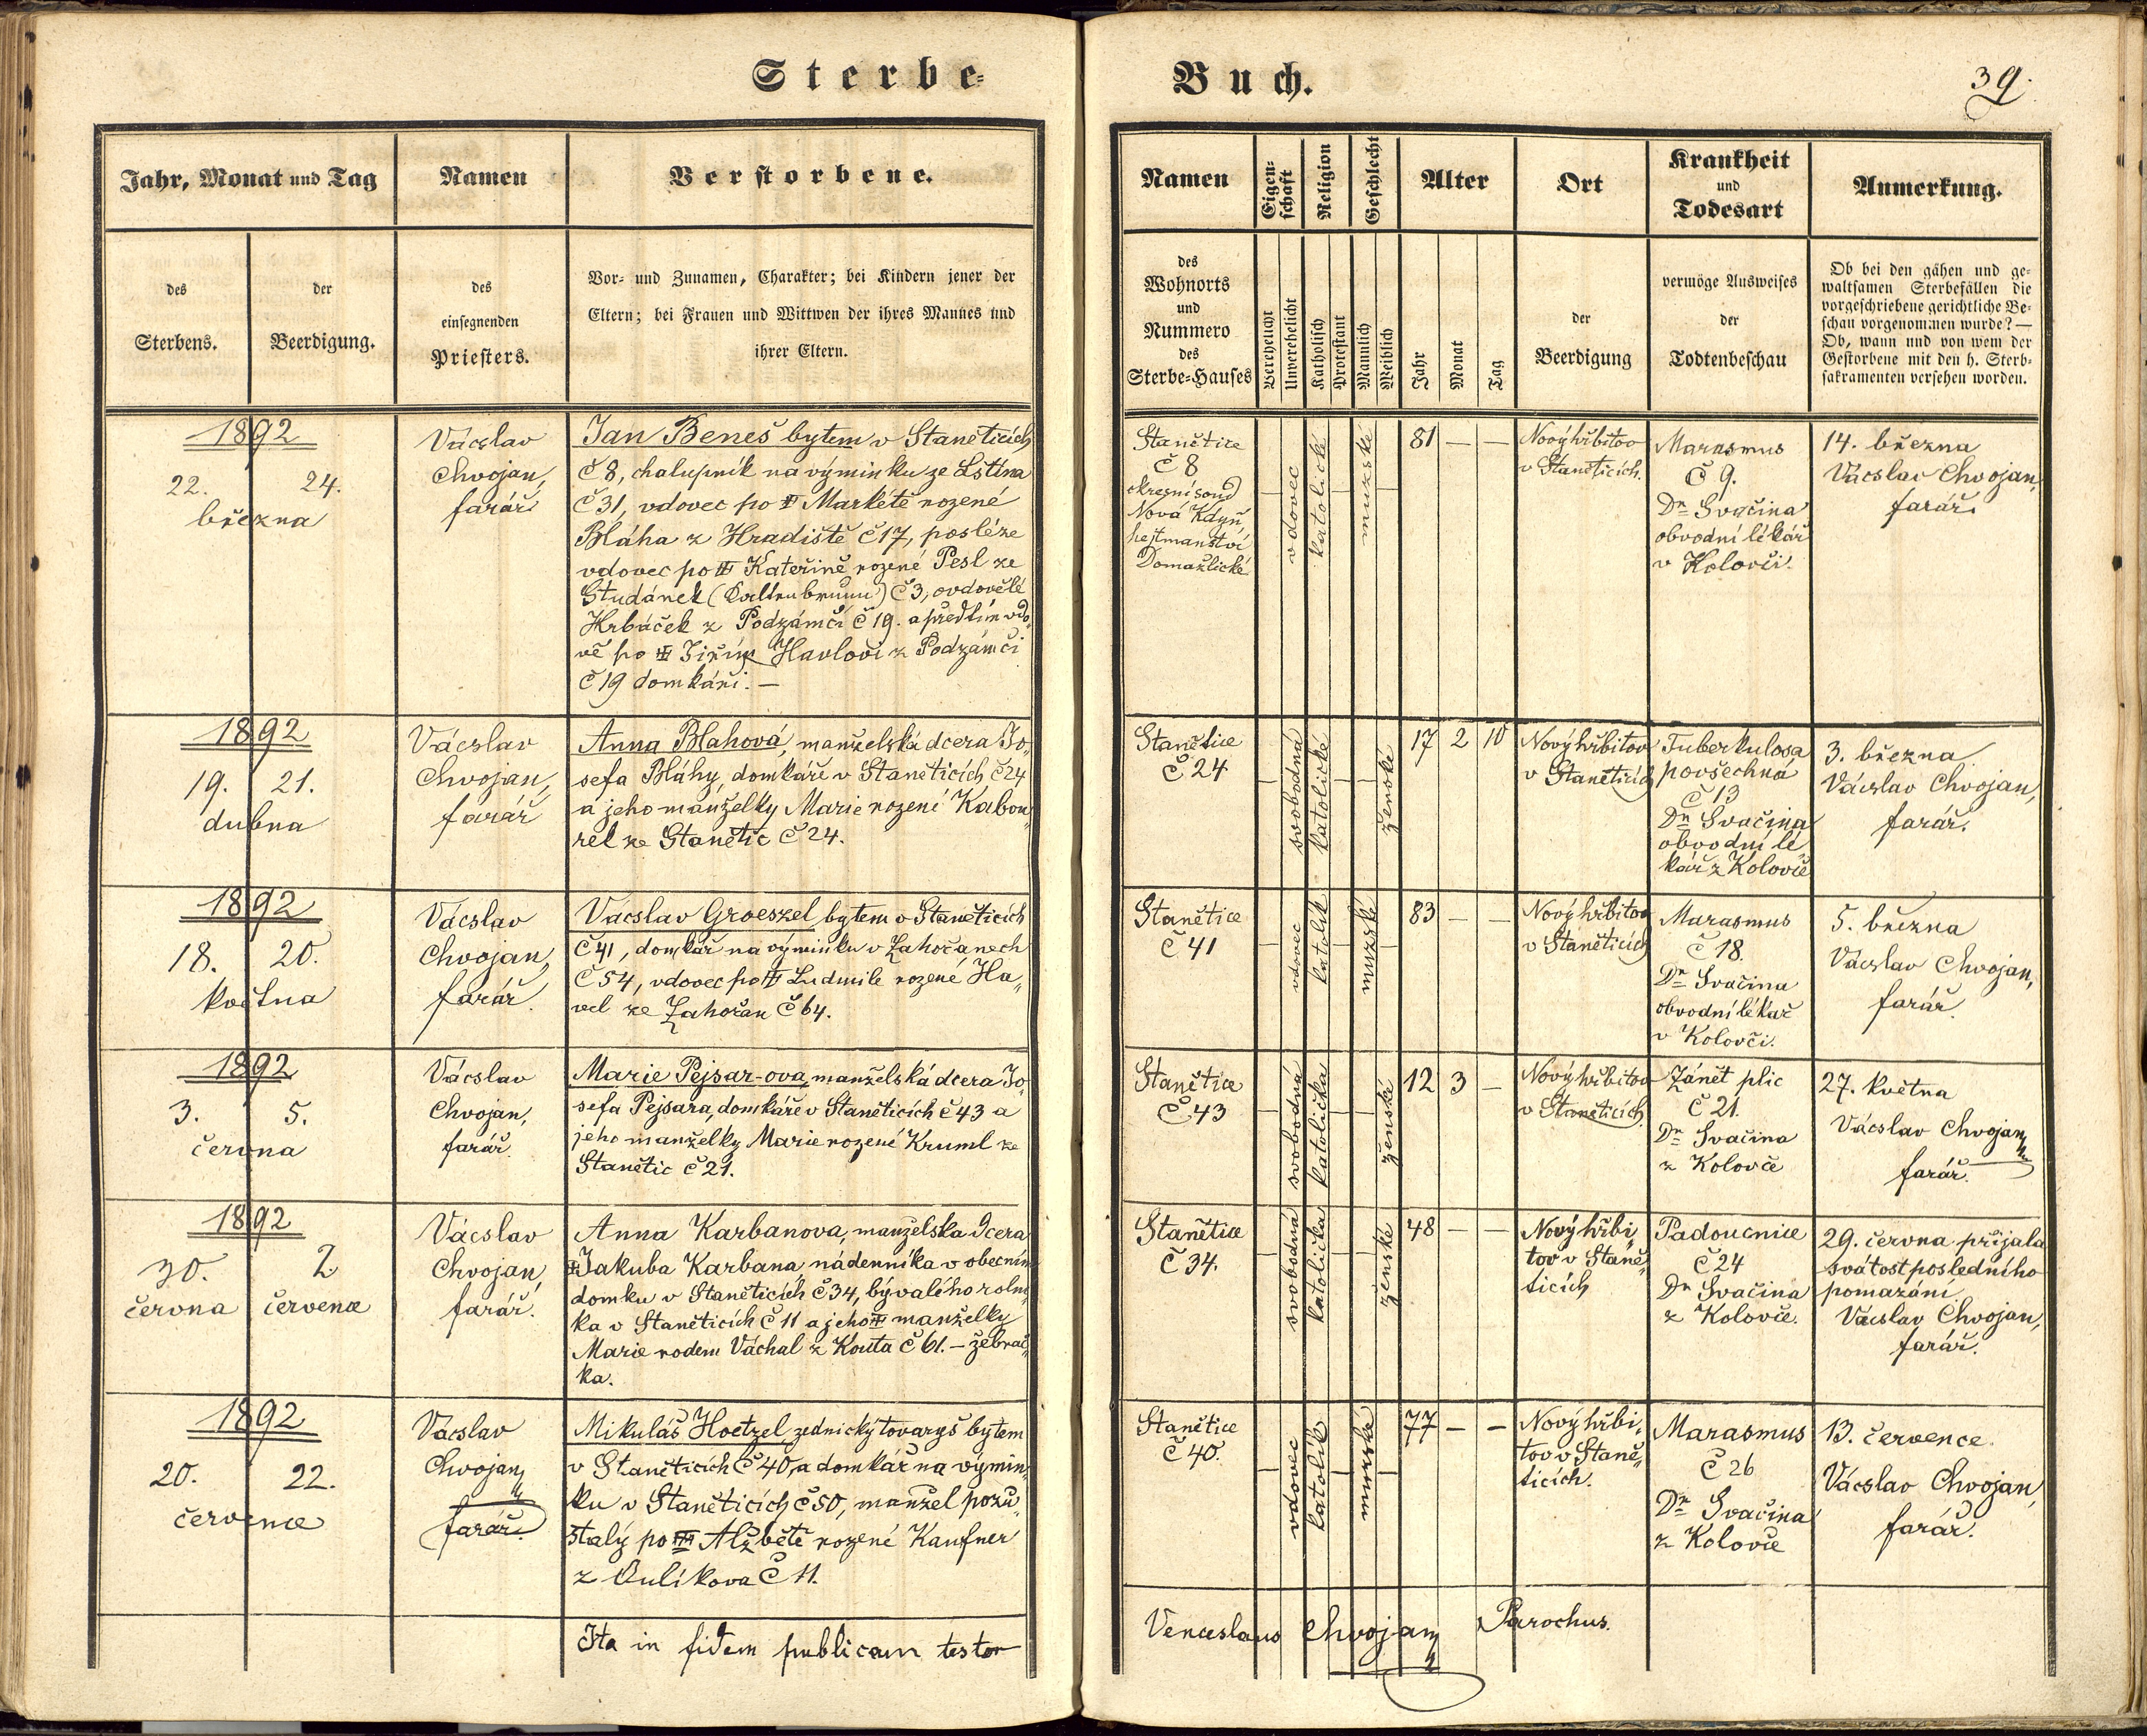 Sterbe-
Buch.
39.
Jahr, Monat und Tag
Namen
Verstorbene.
des
Sterbens.
der
Beerdigung.
des
einsegnenden
Priesters.
Vor- und Zunamen, Charakter; bei Kindern jener der
Eltern; bei Frauen und Wittwen der ihres Mannes und
ihrer Eltern.
Namen
Eigen-
schaft
Religion
Geschlecht
Alter
Ort
Krankheit
und
Todesart
Anmerkung.
des
Wohnorts
und
Nummero
des
Sterbe-Hauses
Verehelicht
Unverehelicht
Katholisch
Protestant
Männlich
Weiblich
Jahr
Monat
Tag
der
Beerdigung
vermöge Ausweises
der
Todtenbeschau
Ob bei den gähen und ge-
waltsamen Sterbefällen die
vorgeschriebene gerichtliche Be-
schau vorgenommen wurde? —
Ob, wann und von wem der
Gestorbene mit den h. Sterb-
sakramenten versehen worden.
1892
22. 24.
března
Vácslav
Chvojan,
farář
Jan Beneš bytem v Stanětících
č 8, chalupník na výminku ze Lštína
č 31, vdovec po Markétě rozené
Bláha z Hradiště č 17, posléze
vdovec po Kateřině rozené Pesl ze
Studánek (Kaltenbrunn) č 3, ovdovělé
Hrbáček z Podzámčí č 19. a předtím vdo„
vě po Jiřím Havlovi z Podzámčí
č 19 domkáři. —
Stanětice
č 8
okresní soud
Nová Kdyň,
hejtmanství
Domažlické
vdovec
katolické
mužské
81 — —
Nový hřbitov
v Stanětících.
Marasmus
č 9.
Dr Svačina
obvodní lékář
v Kolovči.
14. března
Vácslav Chvojan,
farář.
1892
19. 21.
dubna
Vácslav
Chvojan,
farář
Anna Blahová, manželská dcera Jo„
sefa Bláhy, domkáře v Stanětících č 24
a jeho manželky Marie rozené Kabou„
rel ze Stanětic č 24.
Stanětice
č 24
svobodná
katolické
ženské
17 2 10
Nový hřbitov
v Stanětících
Tuberkulosa
povšechná
č 13
Dr Svačina
obvodní lé
kář z Kolovče
3. března
Vácslav Chvojan,
farář.
1892
18. 20.
května
Vácslav
Chvojan,
farář.
Vácslav Groeszel bytem v Stanětících
č 41, domkář na výminku v Zahořanech
č 54, vdovec po Ludmile rozené Ha„
vel ze Zahořan č 64.
Stanětice
č 41
vdovec
katolík
mužské
83 — —
Nový hřbitov
v Stanětících
Marasmus
č 18.
Dr Svačina
obvodní lékař
v Kolovči.
5. března
Vácslav Chvojan,
farář.
1892
3. 5.
června
Vácslav
Chvojan,
farář.
Marie Pejsar-ova, manželská dcera Jo„
sefa Pejsara, domkáře v Stanětících č 43 a
jeho manželky Marie rozené Kruml ze
Stanětic č 21.
Stanětice
č 43
svobodná
katolička
ženské
12 3 —
Nový hřbitov
v Stanětících.
Zánět plic
č 21.
Dr Svačina
z Kolovče
27. května
Vácslav Chvojan
farář.
1892
30. 2.
června července
Vácslav
Chvojan,
farář.
Anna Karbanova, manželska dcera
Jakuba Karbana, nádenníka v obecním
domku v Stanětících č 34, bývalého rolní„
ka v Stanětících č 11 a jeho manželky
Marie rodem Váchal z Kouta č 61. — žebrač„
ka.
Stanětice
č 34.
svobodná
katolička
ženské
48 — —
Nový hřbi„
tov v Staně„
ticích
Padoucnice
č 24
Dr Svačina
z Kolovče.
29. června přijala
svátost posledního
pomazání.
Vácslav Chvojan,
farář.
1892
20. 22.
července
Vácslav
Chvojan,
farář.
Mikuláš Hoetzel, zednický tovaryš bytem
v Stanětících č 40, a domkář na výmin„
ku v Stanětících č 50, manžel pozů„
stalý po Alžbětě rozené Kaufner
z Qulíkova č 11.
Stanětice
č 40.
vdovec
katolík
mužské
77 — —
Nový hřbi„
tov v Staně„
ticích.
Marasmus
č 26
Dr Svačina
z Kolovče
13. července
Vácslav Chvojan,
farář.
Ita in fidem publicam testor
Venceslaus Chvojan Parochus.